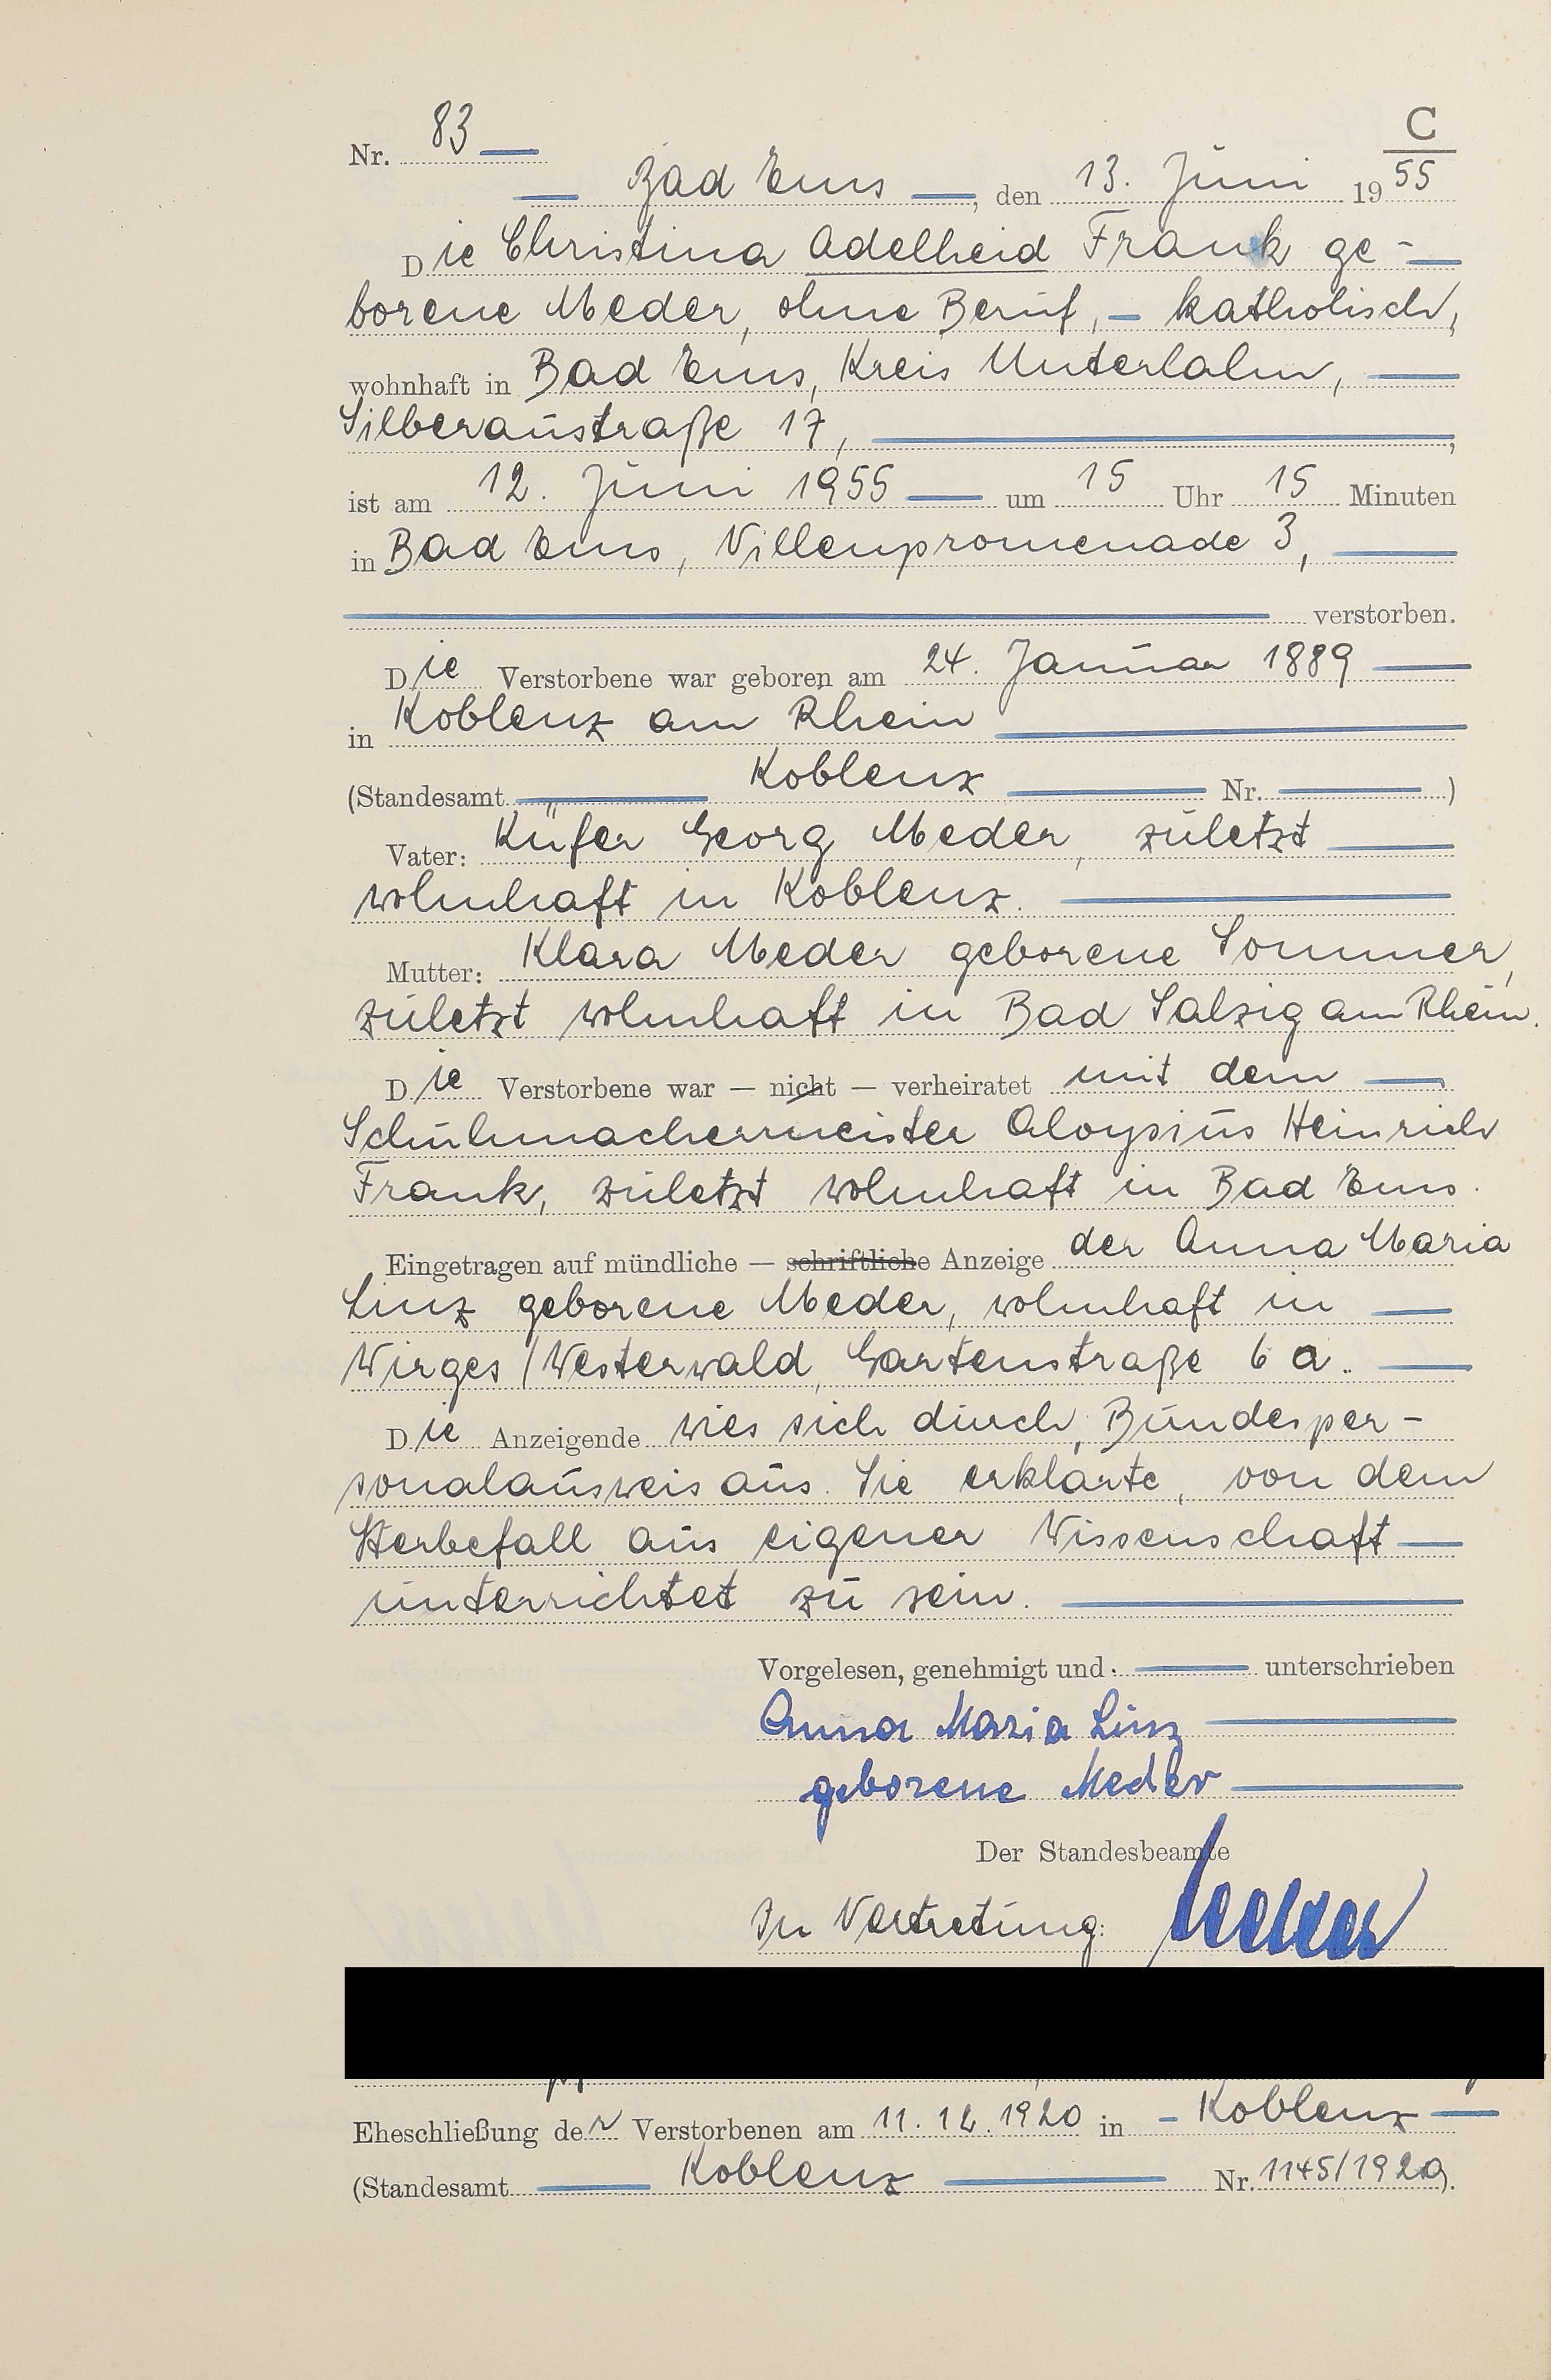 C
Nr. 83
Bad Ems, den 13. Juni 1955
Die Christina Adelheid Frank ge-
borene Meder, ohne Beruf, – katholisch,
wohnhaft in Bad Ems, Kreis Unterlahn,
Silberaustraße 17,
ist am 12. Juni 1955 um 15 Uhr 15 Minuten
in Bad Ems, Villenpromenade 3,
verstorben.
Die Verstorbene war geboren am 24. Januar 1889
in Koblenz am Rhein
(Standesamt Koblenz Nr. )
Vater: Küfer Georg Meder, zuletzt
wohnhaft in Koblenz.
Mutter: Klara Meder geborene Sommer,
zuletzt wohnhaft in Bad Salzig am Rhein.
Die Verstorbene war — nicht — verheiratet mit dem
Schuhmachermeister Aloysius Heinrich
Frank, zuletzt wohnhaft in Bad Ems.
Eingetragen auf mündliche — schriftliche Anzeige der Anna Maria
Linz geborene Meder, wohnhaft in
Wirges/Westerwald, Gartenstraße 6 a.
Die Anzeigende wies sich durch Bundesper-
sonalausweis aus. Sie erklärte, von dem
Sterbefall aus eigener Wissenschaft
unterrichtet zu sein.
Vorgelesen, genehmigt und unterschrieben
Anna Maria Linz
geborene Meder
Der Standesbeamte
In Vertretung:
Eheschließung der Verstorbenen am 11.12.1920 in – Koblenz
(Standesamt Koblenz Nr. 1145/1920).